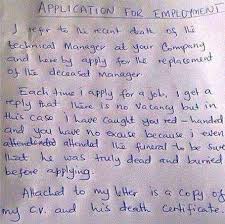 APPLICATION FOR EMPLOYMENT
I refer to the recent death of the
technical Manager at your Company
and hereby apply for the replacement
of the deceased manager.
Each time I apply for a job, I get a
reply that there is no vacancy but in
this case I have caught you red-handed
and you have no excuse because I even
attended the funeral to be sure
that he was truly dead and buried
before applying.
Attached to my letter is a copy of
my C.V. and his death certificate.